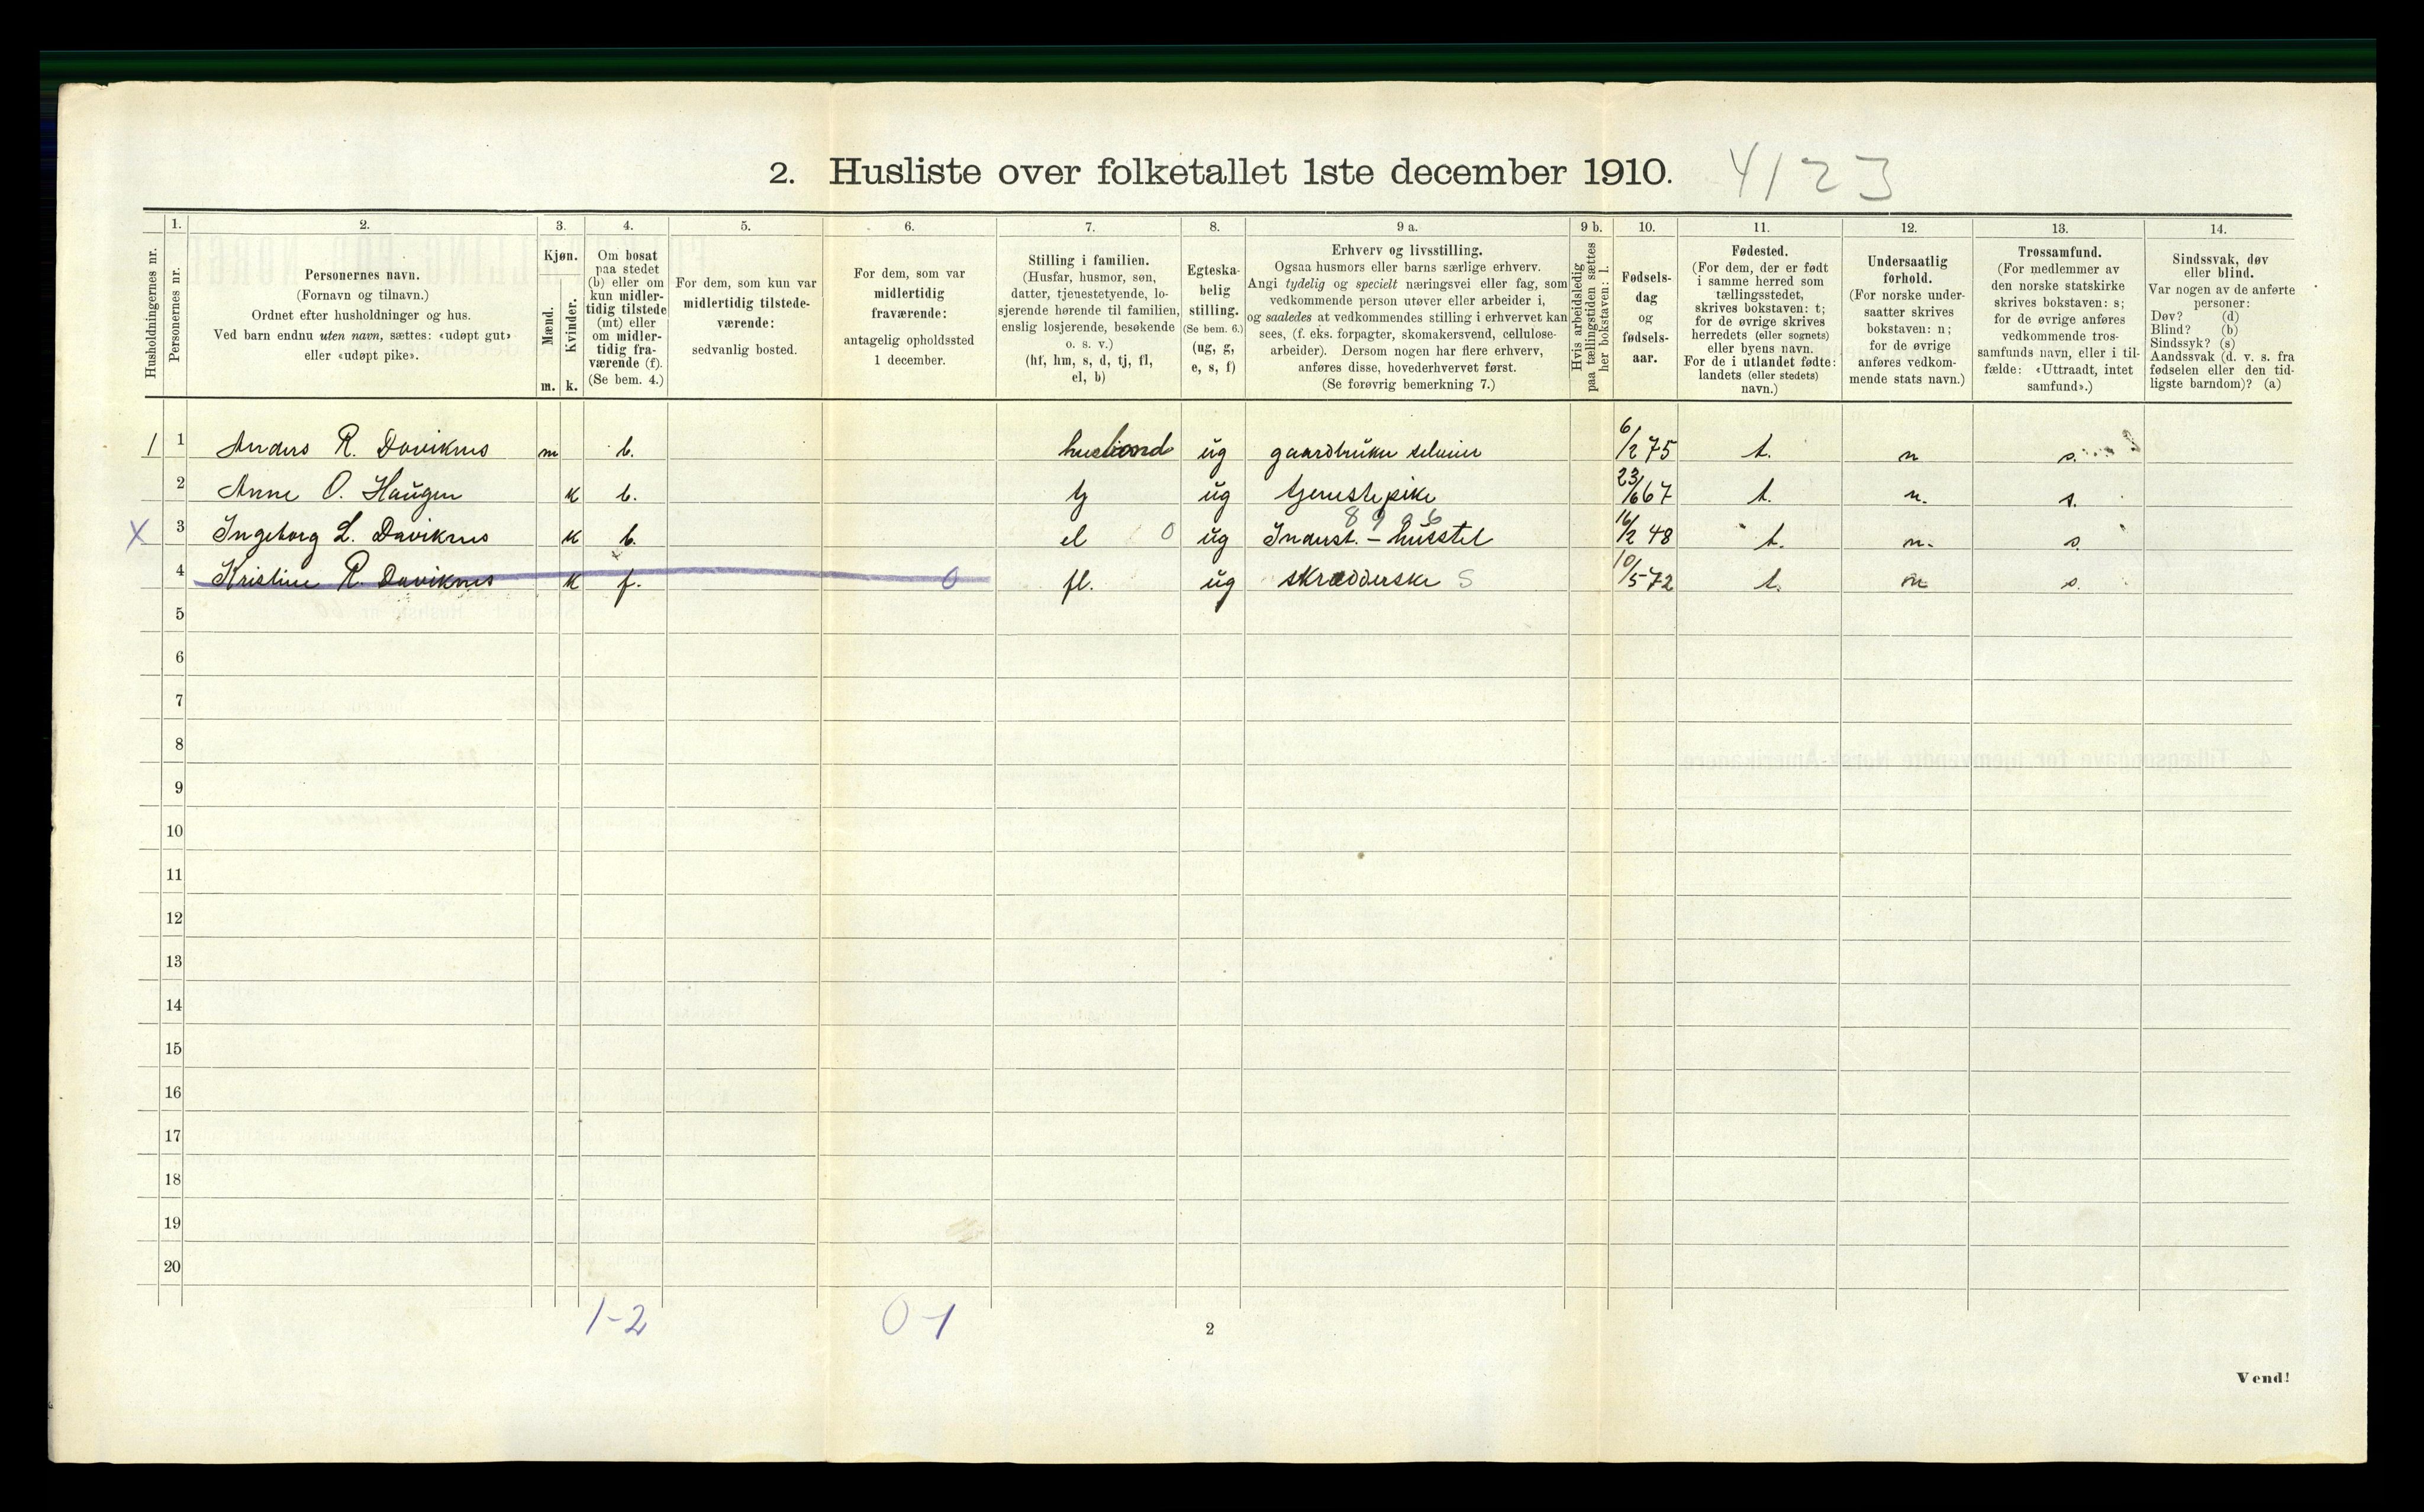 2. Husliste over folketallet 1ste december 1910. 4123
Husholdningernes nr.
1. Personernes nr.
2. Personernes navn.
(Fornavn og tilnavn.)
Ordnet efter husholdninger og hus.
Ved barn endnu uten navn, sættes: «udøpt gut»
eller «udøpt pike».
3. Kjøn.
Mænd. m.
Kvinder. k.
4. Om bosat
paa stedet
(b) eller om
kun midler-
tidig tilstede
(mt) eller
om midler-
tidig fra-
værende (f).
(Se bem. 4.)
5. For dem, som kun var
midlertidig tilstede-
værende:
sedvanlig bosted.
6. For dem, som var
midlertidig
fraværende:
antagelig opholdssted
1 december.
7. Stilling i familien.
(Husfar, husmor, søn,
datter, tjenestetyende, lo-
sjerende hørende til familien,
enslig losjerende, besøkende
o. s. v.)
(hf, hm, s, d, tj, fl,
el, b)
8. Egteska-
belig
stilling.
(Se bem. 6.)
(ug, g,
e, s, f)
9 a. Erhverv og livsstilling.
Ogsaa husmors eller barns særlige erhverv.
Angi tydelig og specielt næringsvei eller fag, som
vedkommende person utøver eller arbeider i,
og saaledes at vedkommendes stilling i erhvervet kan
sees, (f. eks. forpagter, skomakersvend, cellulose-
arbeider). Dersom nogen har flere erhverv,
anføres disse, hovederhvervet først.
(Se forøvrig bemerkning 7.)
9 b. Hvis arbeidsledig
paa tællingstiden sættes
her bokstaven: l.
10. Fødsels-
dag
og
fødsels-
aar.
11. Fødested.
(For dem, der er født
i samme herred som
tællingsstedet,
skrives bokstaven: t;
for de øvrige skrives
herredets (eller sognets)
eller byens navn.
For de i utlandet fødte:
landets (eller stedets)
navn.)
12. Undersaatlig
forhold.
(For norske under-
saatter skrives
bokstaven: n;
for de øvrige
anføres vedkom-
mende stats navn.)
13. Trossamfund.
(For medlemmer av
den norske statskirke
skrives bokstaven: s;
for de øvrige anføres
vedkommende tros-
samfunds navn, eller i til-
fælde: «Uttraadt, intet
samfund».)
14. Sindssvak, døv
eller blind.
Var nogen av de anførte
personer:
Døv? (d)
Blind? (b)
Sindssyk? (s)
Aandssvak (d. v. s. fra
fødselen eller den tid-
ligste barndom)? (a)
1 1 Anders R. Daviknes m b. husbond ug gaardbruker selveier 6/2 75 t. n s.
2 Anne O. Haugen k b. tj ug tjenestepike 23/6 67 t. n. s.
X 3 Ingeborg L. Daviknes k b. el 0 ug Indust. - husstel 16/2 48 t. n. s.
4 Kristine R. Daviknes k f. 0 fl. ug skrædderske S 10/5 72 t. n s.
5
6
7
8
9
10
11
12
13
14
15
16
17
18
19
20
1-2 0-1
2
Vend!